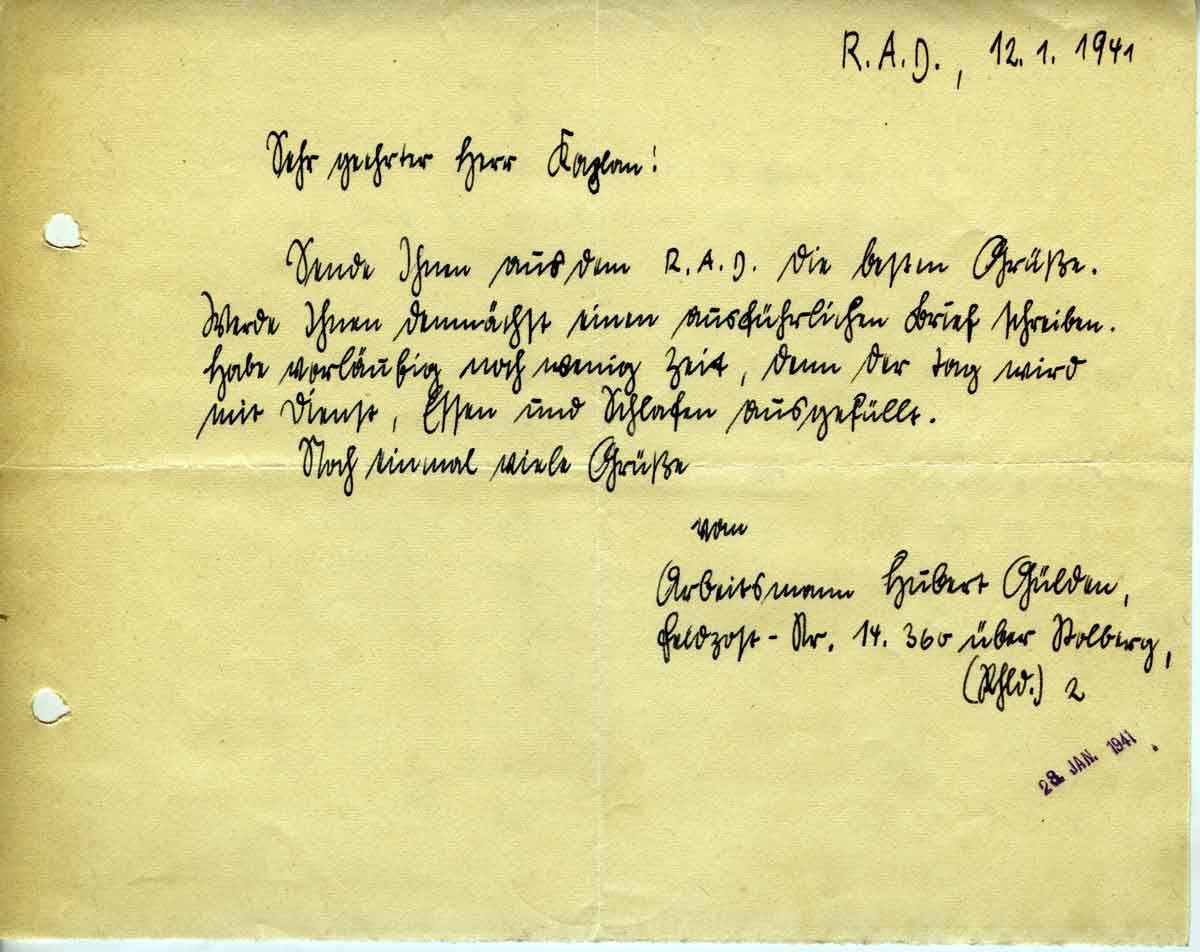 R.A.D., 12.1.1941
Sehr geehrter Herr Kaplan!
Sende Ihnen aus dem R.A.D. die besten Grüße.
Werde Ihnen demnächst einen ausführlichen Brief schreiben.
Habe vorläufig noch wenig Zeit, denn der Tag wird
mit Dienst, Essen und Schlafen ausgefüllt.
Noch einmal viele Grüße
vom
Arbeitsmann Hubert Gülden,
Feldpost-Nr. 14.360 über Stolberg,
(Rhld.) 2
28. JAN. 1941